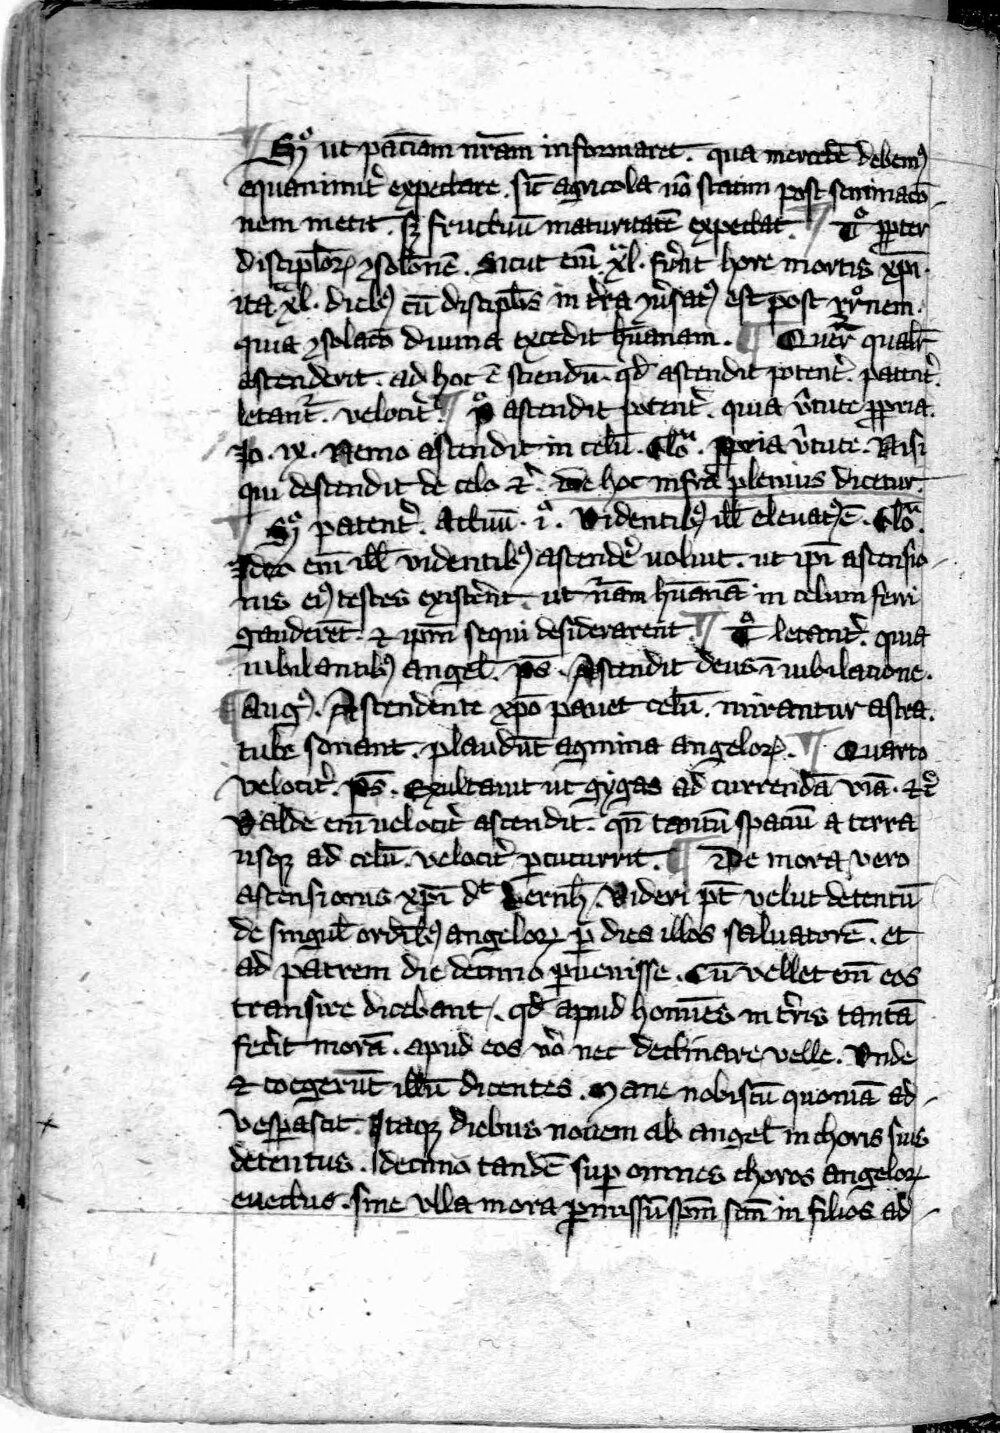 ¶ Sͦ ut pacīam nr̄am informaret . qua mercedē debemꝰ
equanimit̓ expectare . sic̄ agricola nō statim post seminacō-
nem metit . sꝫ fructuū maturitatē expectat . ¶ Tͦ ꝓpter
discipl̓oꝝ ꝯsol̓onē . Sicut em̄ .xl. fuer̄t hore mortis xp̄i .
ita xl . diebꝰ cū discip̄lis in t̓ra ꝯv̓satꝰ est post rr̄onem .
quia ꝯsolacō divina excedit hūanam . ¶ Querit̄ qualit̄
ascenderit . ad hoc ē sciendū . qd̓ ascendit potent̓ . patent̓ .
letant̓ . velocit̓ ¶ Pͦ ascendit potent̓ . quia v̓tute ꝓpria .
Jo . ix . Nemo ascendit in celū . Gloͣ . ꝓpria v̓tute . Nisi
qui descendit de celo ⁊c̓ . de hoc infra plenius dicetur .
¶ Sͦ patent̓ . Actuū . iͦ . Videntibꝰ ill̓ elevatꝰ ē . Gloͣ .
Ideo em̄ ill̓ videntibꝰ ascend̓e voluit . ut ip̄i ascensio-
nis eiꝰ testes exister̄et . ut nām hūanā in celum ferri
gauderēt . ⁊ ip̄m sequi desiderarent . ¶ Tͦ letant̓ . quia
iubilantibꝰ angel̓ . ps̄ . Ascendit deus ī iubilacione .
¶ Augꝰ . Ascendente xp̄o pauet celū . mirantur astra .
tube sonant . plaudūt agmina angeloꝝ . ¶ Quarto
velocit̓ . ps̄ . Exultauit ut gygas ad currendā viā . ⁊c̓
Valde em̄ velocit̓ ascendit . qn̄ tantū spaciū a terra
usqꝫ ad celū . velocit̓ ꝑcucurrit . ¶ De mora vero
ascensionis xp̄i dt̄ bernh̓ . Videri pt̄ velut detentū
de singul̓ ordībꝰ angeloꝝ ꝑ dies illos saluatorē . et
ad patrem die decimo ꝑuenisse . Cū vellet em̄ eos
transire dicebant . qd̓ apud homīes in t̓ris tantā
fec̓it morā . apud eos v̓o nec declinare velle . Vnde
⁊ coegerūt illū dicentes . Mane nobiscū quoniā ad-
vesꝑascit . Itaqꝫ diebus nouem ab angel̓ in choris suis
detentus . decimo tandē suꝑ omnes choros angeloꝝ
euectus . sine vlla mora ꝑmissū spm̄ scm̄ in filios ad-